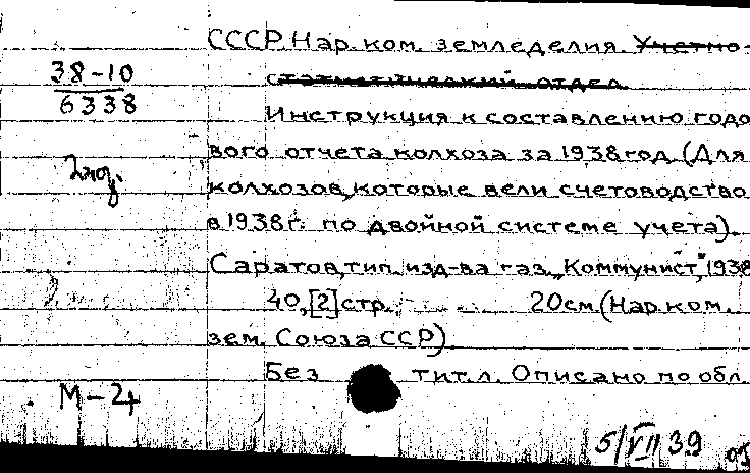 СССР. Нар. ком. земледелия. Учетно-
статистический отдел
38-10
6338
Инструкция к составлению годо
вого отчета колхоза за 1938 год. (Для
колхозов, которые вели счетоводство
в 1938 г. по двойной системе учета).
Саратов, тип. изд-ва газ. „Коммунист", 1938
40, [2] стр. 20 см. (Нар. ком.
зем. Союза ССР).
Без тит. л. Описано по обл.
М-24
5/VII 39